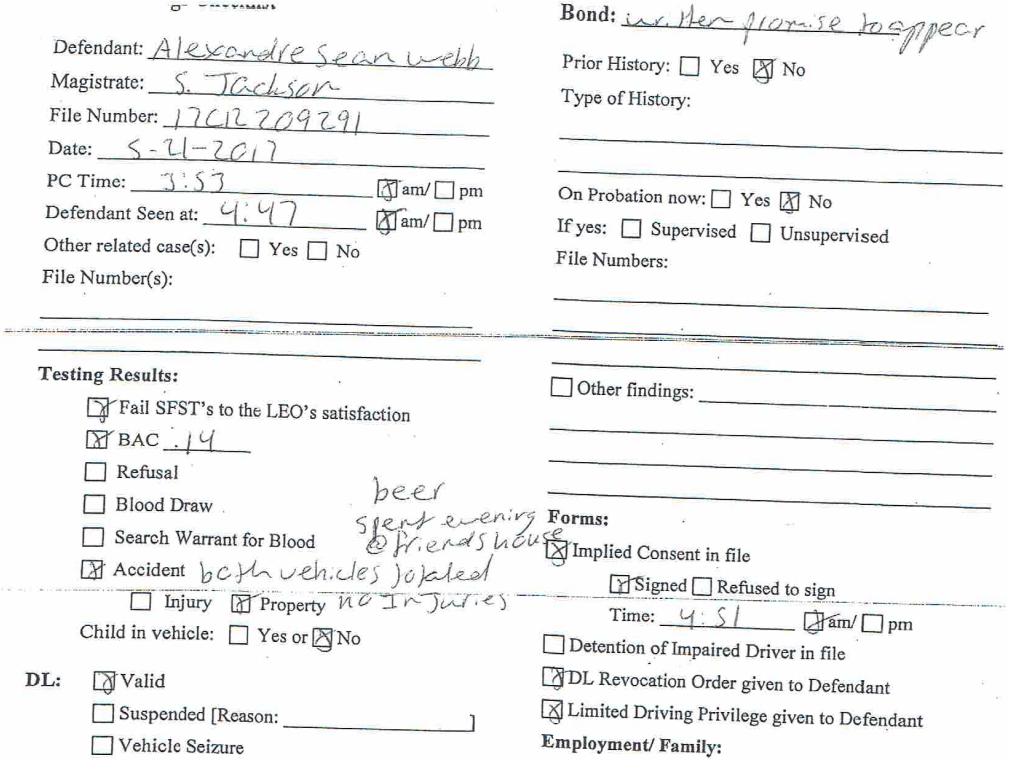 Defendant: Alexandre Sean Webb
Magistrate: S. Jackson
File Number: 17CR 209291
Date: 5-21-2017
PC Time: 3:53 ☒ am/ ☐ pm
Defendant Seen at: 4:47 ☒ am/ ☐ pm
Other related case(s): ☐ Yes ☐ No
File Number(s):
Testing Results:
☒ Fail SFST's to the LEO's satisfaction
☒ BAC .14
☐ Refusal
☐ Blood Draw
☐ Search Warrant for Blood
beer
spent evening
@ friends house
☒ Accident both vehicles totaled
☐ Injury ☒ Property no Injuries
Child in vehicle: ☐ Yes or ☒ No
DL: ☒ Valid
☐ Suspended [Reason: ]
☐ Vehicle Seizure
Bond: written promise to appear
Prior History: ☐ Yes ☒ No
Type of History:
On Probation now: ☐ Yes ☒ No
If yes: ☐ Supervised ☐ Unsupervised
File Numbers:
☐ Other findings:
Forms:
☒ Implied Consent in file
☒ Signed ☐ Refused to sign
Time: 4:51 ☒ am/ ☐ pm
☐ Detention of Impaired Driver in file
☒ DL Revocation Order given to Defendant
☒ Limited Driving Privilege given to Defendant
Employment/ Family: